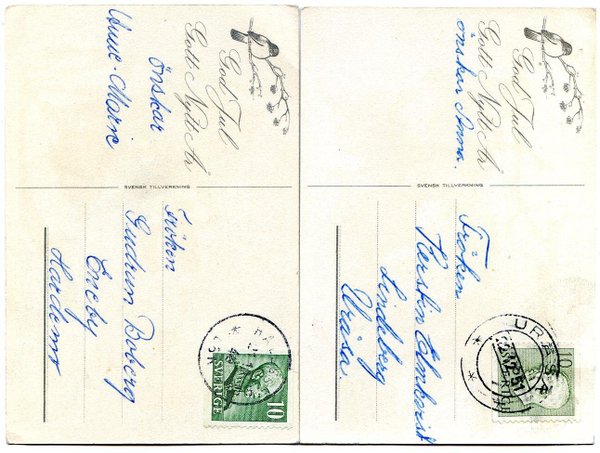 God Jul
Gott Nytt År
önskar
Anne-Marie
SVENSK TILLVERKNING
Fröken
Gudrun Boberg
Eneby
Hardemo
SVERIGE
10
God Jul
Gott Nytt År
önskar Anna.
SVENSK TILLVERKNING
Fröken
Kerstin
Lindeberg
Uråsa.
URÅSA
10